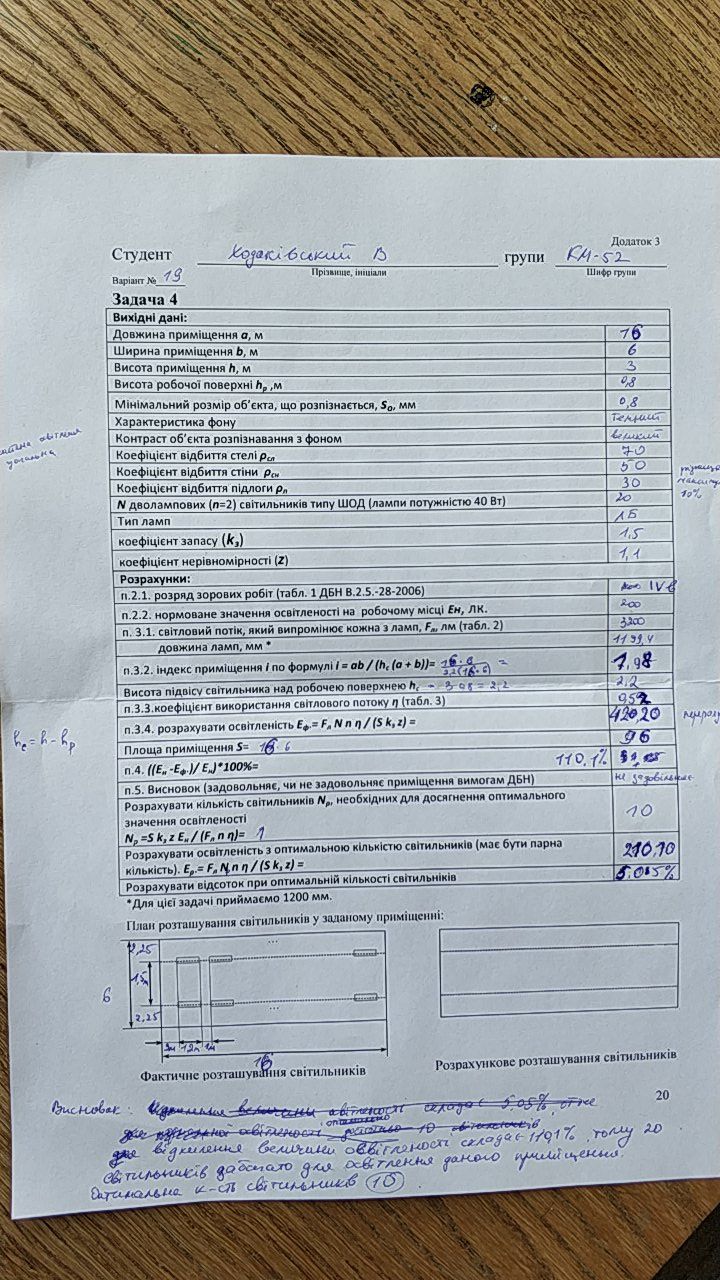 Додаток 3
Студент Ходаківський В групи КМ-52
Прізвище, ініціали Шифр групи
Варіант № 19
Задача 4
Вихідні дані:
Довжина приміщення a, м 16
Ширина приміщення b, м 6
Висота приміщення h, м 3
Висота робочої поверхні hр ,м 0,8
Мінімальний розмір об'єкта, що розпізнається, So, мм 0,8
Характеристика фону темний
Контраст об'єкта розпізнавання з фоном великий
Коефіцієнт відбиття стелі ρсп 70
Коефіцієнт відбиття стіни ρсн 50
Коефіцієнт відбиття підлоги ρп 30
N дволампових (n=2) світильників типу ШОД (лампи потужністю 40 Вт) 20
Тип ламп ЛБ
коефіцієнт запасу (kз) 1,5
коефіцієнт нерівномірності (z) 1,1
Розрахунки:
п.2.1. розряд зорових робіт (табл. 1 ДБН В.2.5.-28-2006) IV в
п.2.2. нормоване значення освітленості на робочому місці Eн, ЛК. 200
п. 3.1. світловий потік, який випромінює кожна з ламп, Fл, лм (табл. 2) 3200
довжина ламп, мм * 1199,4
п.3.2. індекс приміщення i по формулі i = ab / (hc (a + b))= 16·6 / 2,2(16+6) = 1,98
Висота підвісу світильника над робочею поверхнею hc = 3-0,8 = 2,2
п.3.3.коефіцієнт використання світлового потоку η (табл. 3) 0,52
п.3.4. розрахувати освітленість Eф = Fл N n η / (S kз z) = 420,20
hc = h - hр
Площа приміщення S= 16·6 96
п.4. ((Eн -Eф)/ Eн)*100%= 110,1%
п.5. Висновок (задовольняє, чи не задовольняє приміщення вимогам ДБН) не задовільняє
Розрахувати кількість світильників Nр, необхідних для досягнення оптимального
значення освітленості 10
Nр =S kз z Eн / (Fл n η)=
Розрахувати освітленість з оптимальною кількістю світильників (має бути парна
кількість). Eр = Fл Nр n η / (S kз z) = 210,10
Розрахувати відсоток при оптимальній кількості світильників 5,05%
*Для цієї задачі приймаємо 1200 мм.
План розташування світильників у заданому приміщенні:
2,25
1,5м
6
2,25
1,2м 1м
16
Фактичне розташування світильників Розрахункове розташування світильників
20
Висновок: відхилення величини освітленості складає 5.05%, отже
відхилення величини освітленості складає 110,1%, тому 20
світильників забагато для освітлення даного приміщення.
Оптимальна к-сть світильників 10.